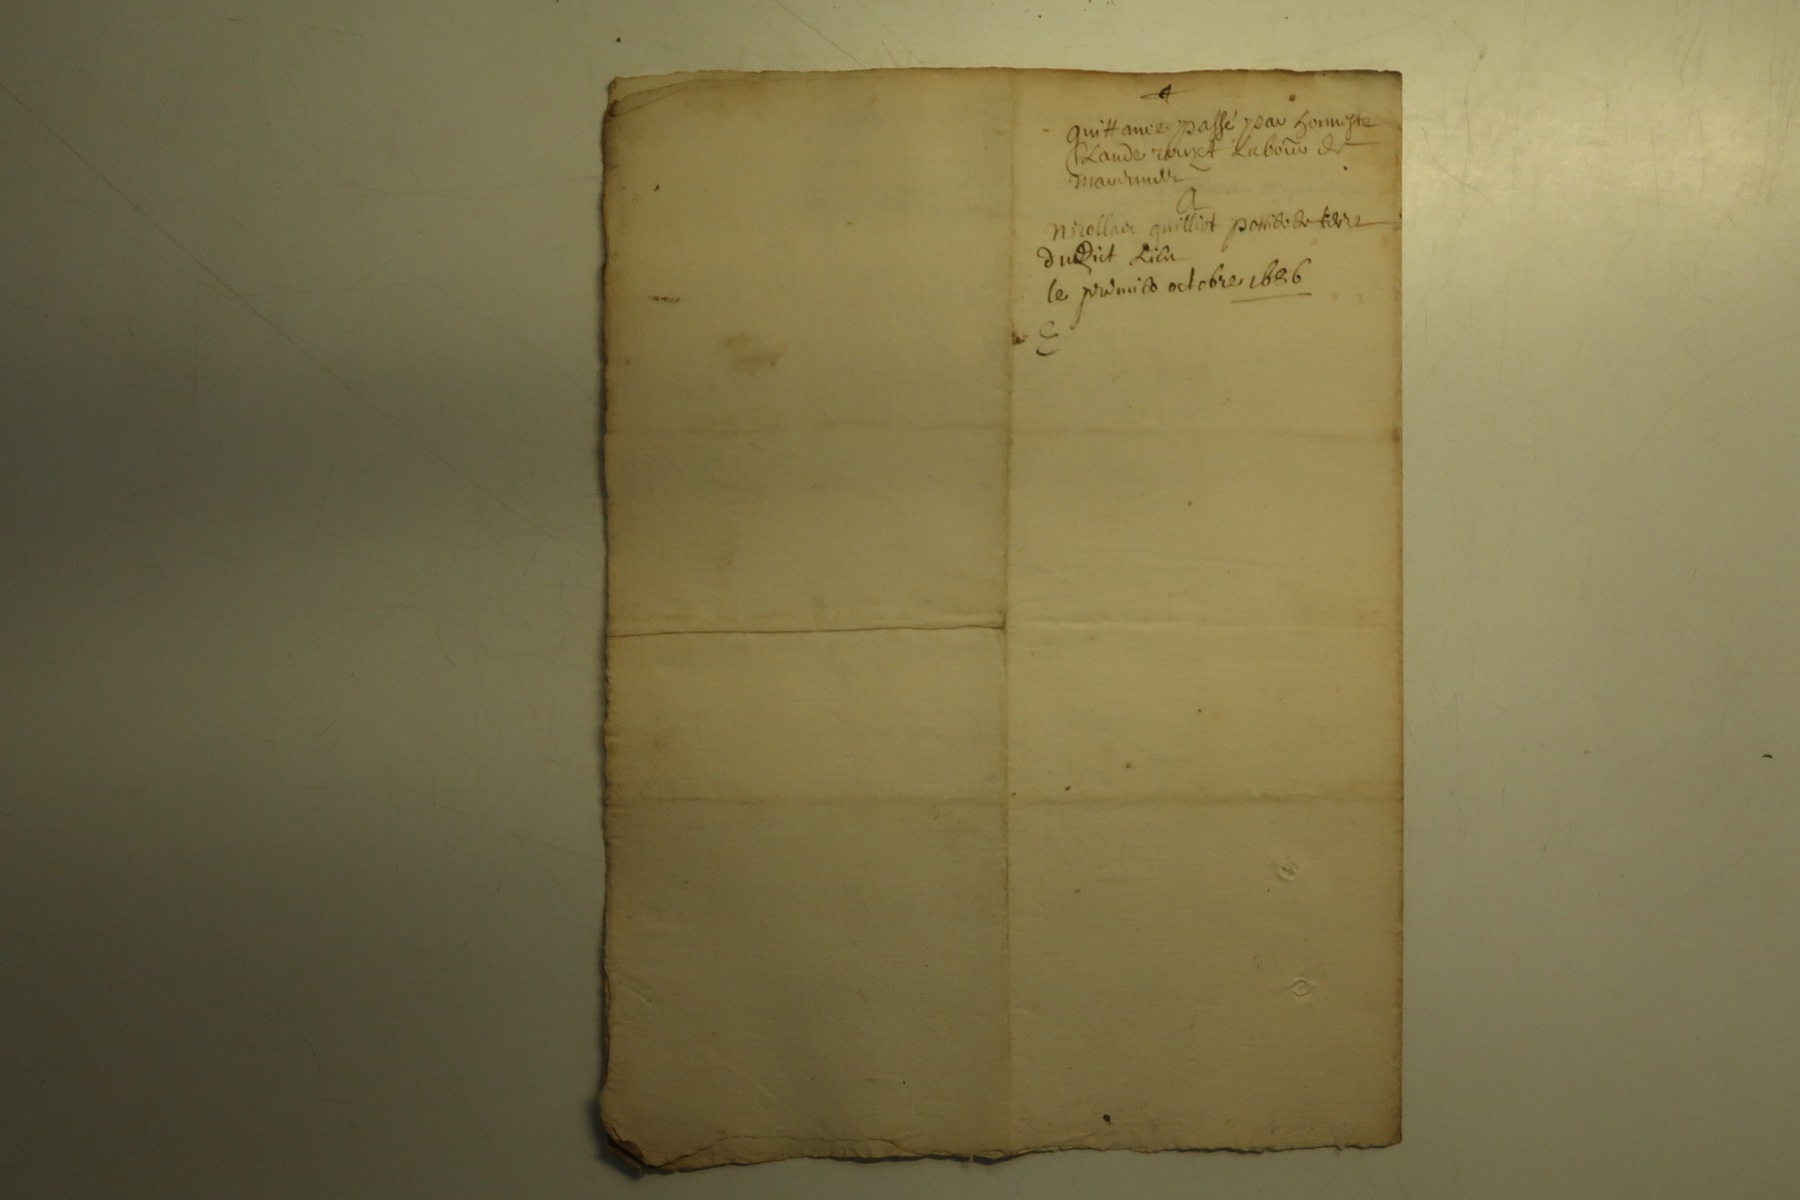 quittance passé par honneste
Claude rouyet Labour de
A
Nicollas quilliot pottier de terre
dudict Lieu
le premier octobre 1686